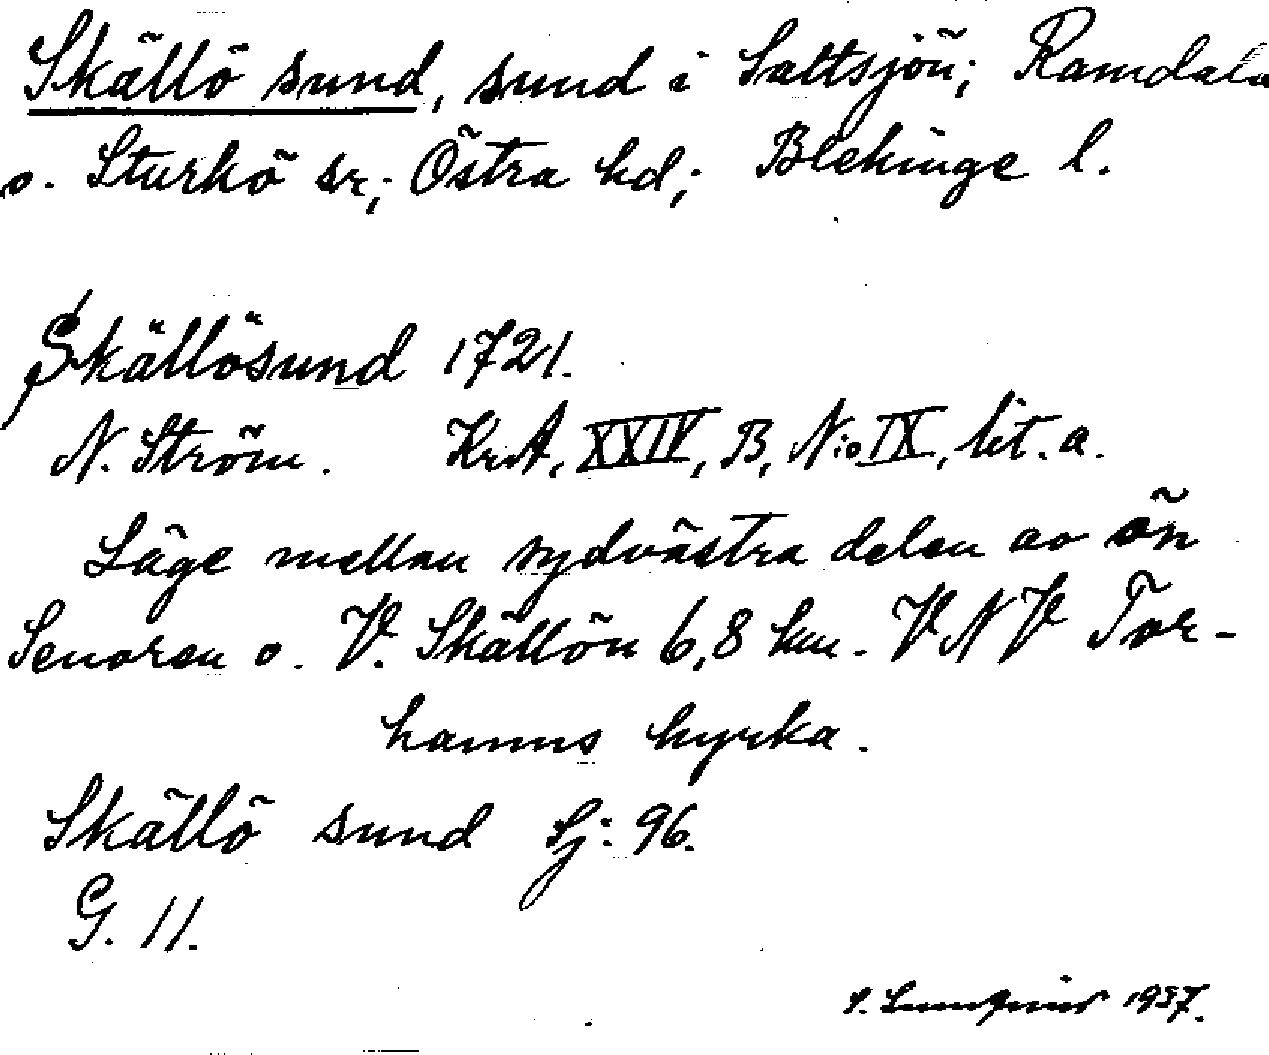 Skällö sund, sund i Saltsjön; Ramdala
o. Sturkö sr; Östra hd; Blekinge l.
Skällösund 1721.
N. Ström. KrA, XXIV, B, N:o IX, lit. a.
Läge mellan sydvästra delen av ön
Senoren o. V. Skällön 6,8 km. VNV Tor-
hamns kyrka.
Skällö sund Sj: 96.
G. 11.
S. Lundqvist 1937.